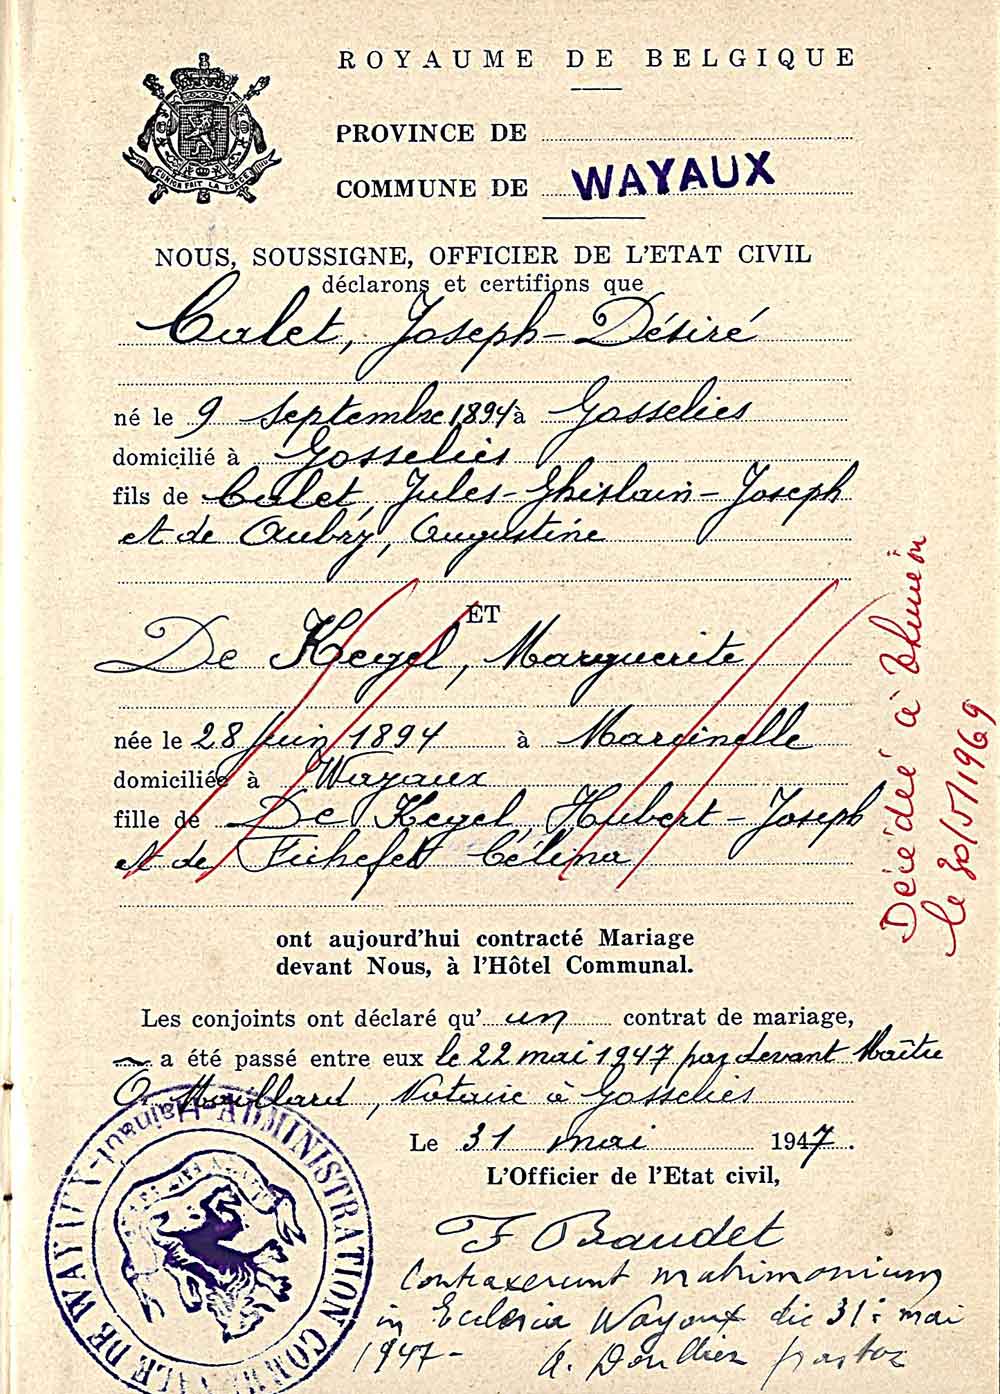 ROYAUME DE BELGIQUE
PROVINCE DE
COMMUNE DE WAYAUX
L'UNION FAIT LA FORCE
NOUS, SOUSSIGNE, OFFICIER DE L'ETAT CIVIL
déclarons et certifions que
Calet, Joseph-Désiré
né le 9 Septembre 1894 à Gosselies
domicilié à Gosselies
fils de Calet, Jules-Ghislain-Joseph
et de Aubry, Augustine
ET
De Kegel, Marguerite
née le 28 Juin 1894 à Marcinelle
domiciliée à Wayaux
fille de De Kegel, Hubert-Joseph
et de Fichefet Célina
Décédée à Thuméon
le 30/5/1969
ont aujourd'hui contracté Mariage
devant Nous, à l'Hôtel Communal.
Les conjoints ont déclaré qu' un contrat de mariage,
a été passé entre eux le 22 mai 1947 par devant Maître
O. Maillard, Notaire à Gosselies
Le 31 mai 1947.
L'Officier de l'Etat civil,
F Baudet
Contraxerunt matrimonium
in Ecclesia Wayaux die 31: mai
1947- A. pastor
ADMINISTRATION COMMUNALE DE WAYAUX-Hainaut-